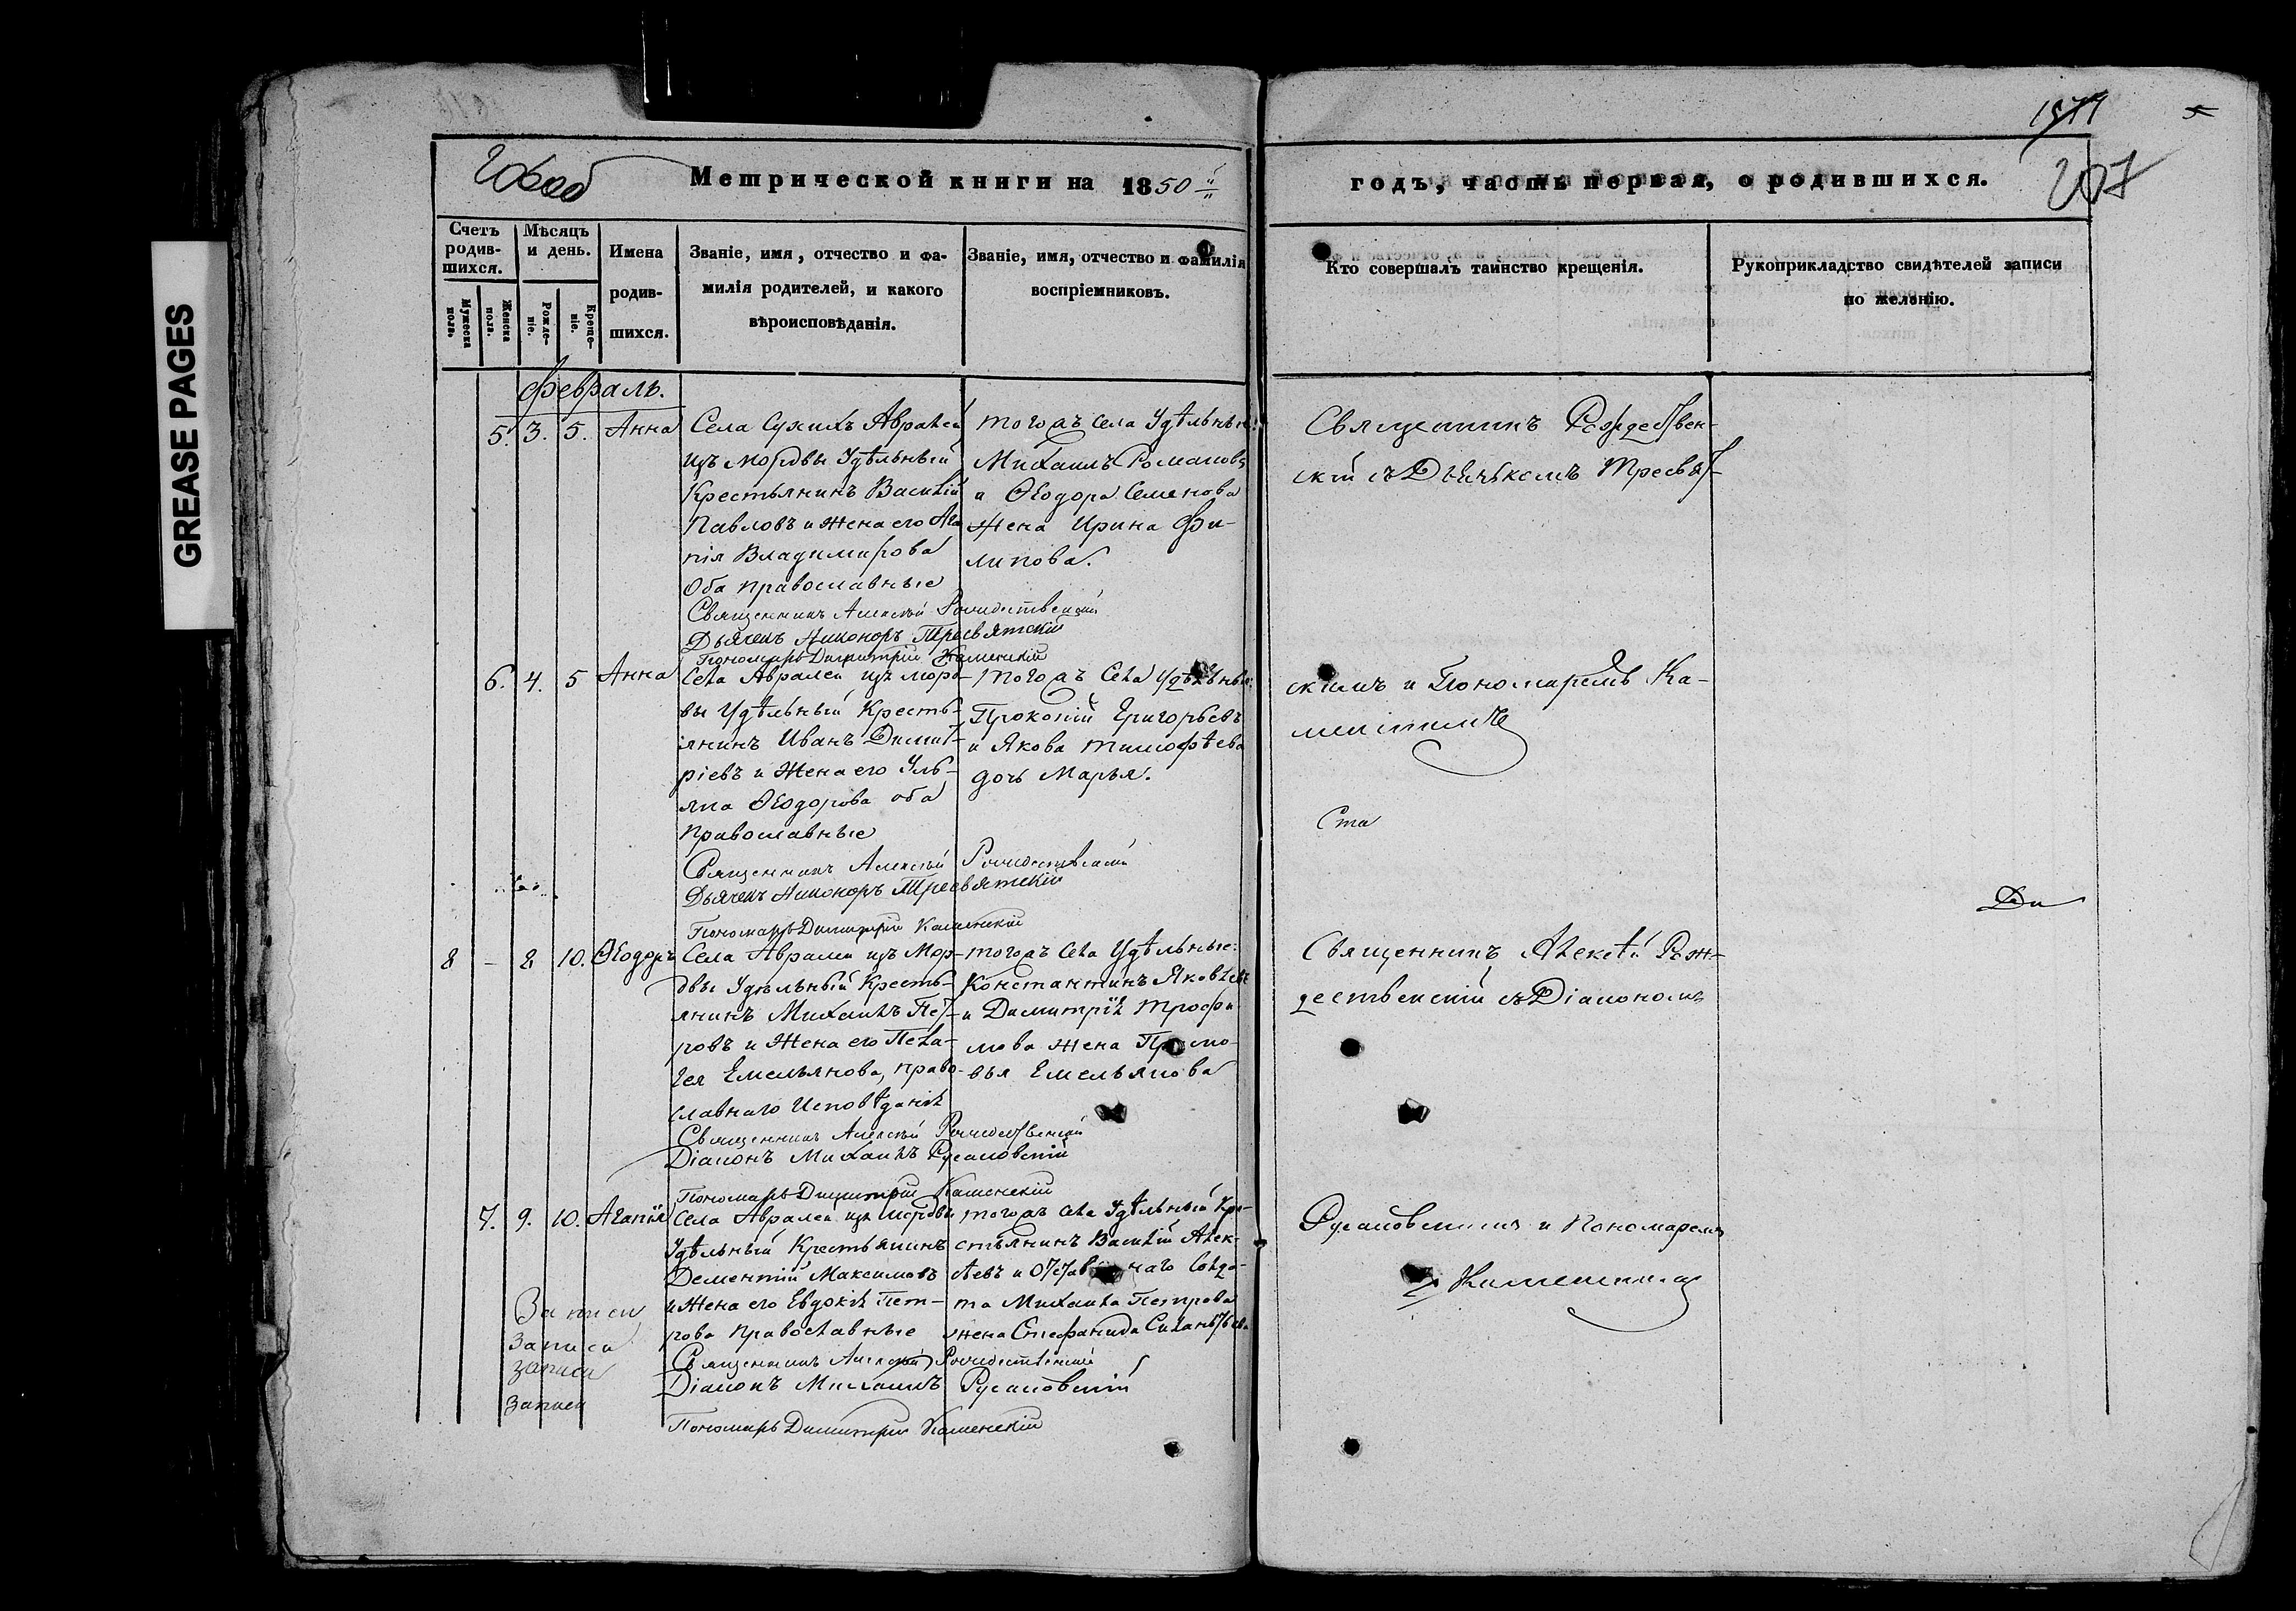 GREASE PAGES
1871
207
Метрической книги на 1850й
годъ, часть первая, о родившихся.
Счетъ родив-шихся.
Мужеска пола.
Женска пола.
Мѣсяцъ и день.
Рожде-ніе.
Креще-ніе.
Имена
родив-
шихся.
Званіе, имя, отчество и фа-
милія родителей, и какого
вѣроисповѣданія.
Званіе, имя, отчество и фамилія
воспріемниковъ.
Кто совершалъ таинство крещенія.
Рукоприкладство свидѣтелей записи
по желанію.
Февраль.
5. 3. 5. Анна
Села Сухихъ Авралей
изъ мордвы Удѣльный
Крестьянинъ Василій
Павловъ и жена его Ага
пія Владимирова
Оба православные
тогожъ села Удѣльные:
Михаилъ Романовъ
и Ѳеодора Семенова
жена Ирина Фи-
липова.
Священникъ Рождествен-
скій съ Дьячкомъ Тресвят-
Священникъ Алексѣй Рождественскій
Дьячекъ Никоноръ Тресвятскій
Пономарь Димитрій Каменскій
6. 4. 5 Анна
Села Авралей изъ морд-
вы Удѣльный Кресть-
янинъ Иванъ Димит-
ріевъ и жена его Уль-
яна Ѳеодорова оба
православные
тогожъ Села Удѣльные:
Прокопій Григорьевъ
и Якова Тимофѣева
дочь Марья.
скимъ и Пономаремъ Ка-
менскимъ
Ста
Священникъ Алексѣй Рождественскій
Дьячекъ Никоноръ Тресвятскій
Пономарь Димитрій Каменскій
Ди
8 - 8 10. Ѳеодоръ
Села Авралей изъ Мор-
двы Удѣльный Кресть-
янинъ Михаилъ Пет-
ровъ и жена его Пела-
гея Емельянова, право-
славнаго Исповѣданія
тогожъ Села Удѣльные:
Константинъ Яковлевъ
и Димитрія Трофи
мова жена
вья Емельянова
Священникъ Алексѣй Рож-
дественскій съ Діакономъ
Священникъ Алексѣй Рождественскій
Діаконъ Михаилъ Русановскій
Пономарь Димитрій Каменскій
7. 9. 10. Агапія
Села Авралей изъ мордвы
Удѣльный Крестьянинъ
Дементій Максимовъ
и жена его Евдокія Пет-
рова православные
тогожъ Села Удѣльный Кре-
стьянинъ Василій Алек-
ѣевъ и Отставнаго Солда-
та Михаила Петрова
жена Стефанида Силантьева
Русановскимъ и Пономаремъ
Каменскимъ
Записи
Записи
записи
записи
Священникъ Алексѣй Рождественскій
Діаконъ Михаилъ Русановскій
Пономарь Димитрій Каменскій